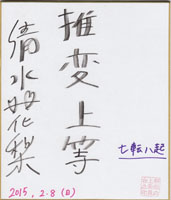 推変上等
清水好花梨
七転八起
2015.2.8(日)